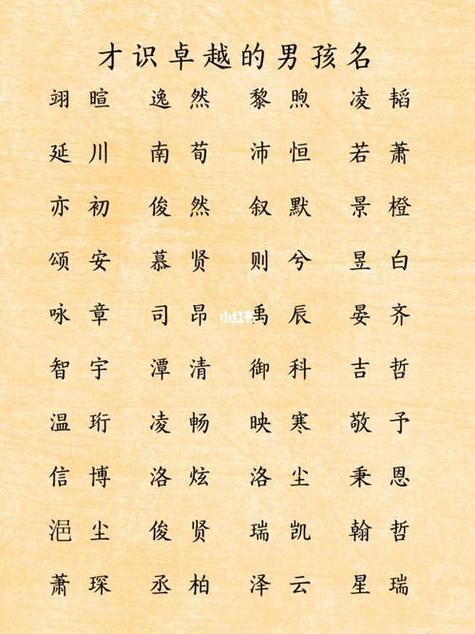 才识卓越的男孩名
翊暄 逸然 黎煦 凌韬
延川 南荀 沛恒 若萧
亦初 俊然 叙默 景橙
颂安 慕贤 则兮 昱白
咏章 司昂 禹辰 晏齐
小红书
智宇 潭清 御科 吉哲
温珩 凌畅 映寒 敬予
信博 洛炫 洛尘 秉恩
浥尘 俊贤 瑞凯 翰哲
萧琛 丞柏 泽云 星瑞